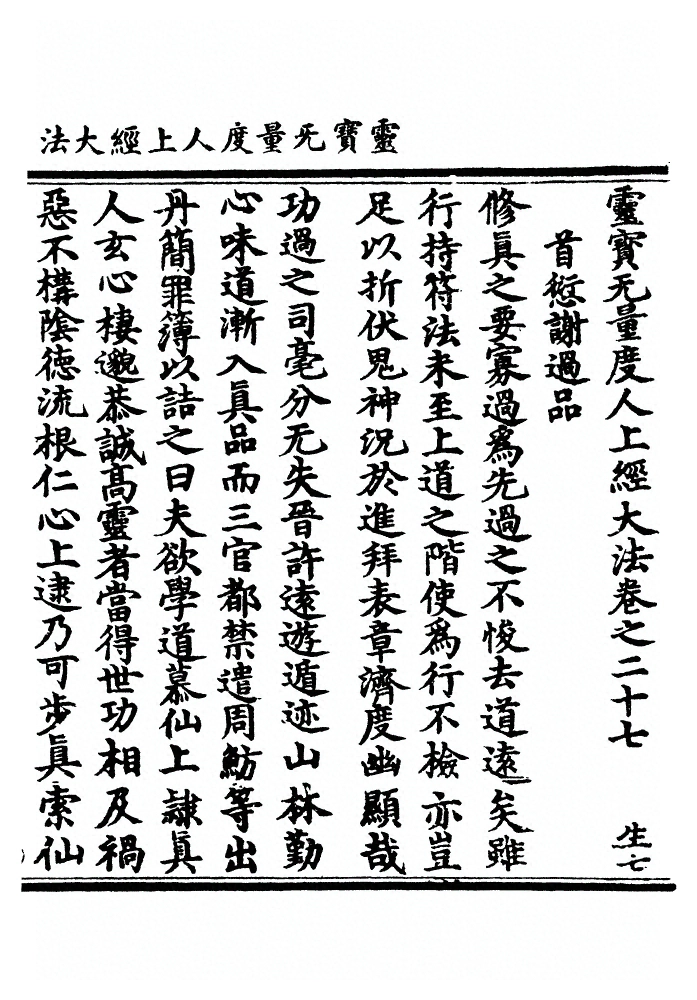 靈寶无量度人上經大法
靈寶无量度人上經大法卷之二十七 生七
首愆謝過品
修真之要寡過爲先過之不悛去道遠矣雖
行持符法未至上道之階使爲行不檢亦豈
足以折伏鬼神況於進拜表章濟度幽顯哉
功過之司毫分无失晉許遠遊遁迹山林勤
心味道漸入真品而三官都禁遣周魴等出
丹簡罪簿以詰之曰夫欲學道慕仙上隷真
人玄心棲邈恭誠高靈者當得世功相及禍
惡不構陰德流根仁心上逮乃可步真索仙